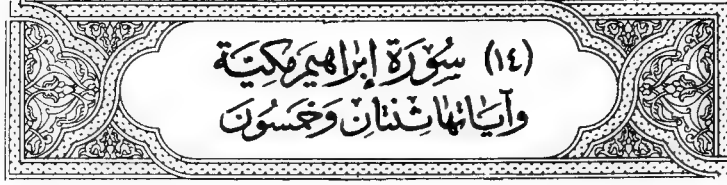 (١٤) سُوْرَة إبْرَاهِيم مَكِيَّة
وَآيَاتهَا ثِنْتَان وَخَمْسُونَ